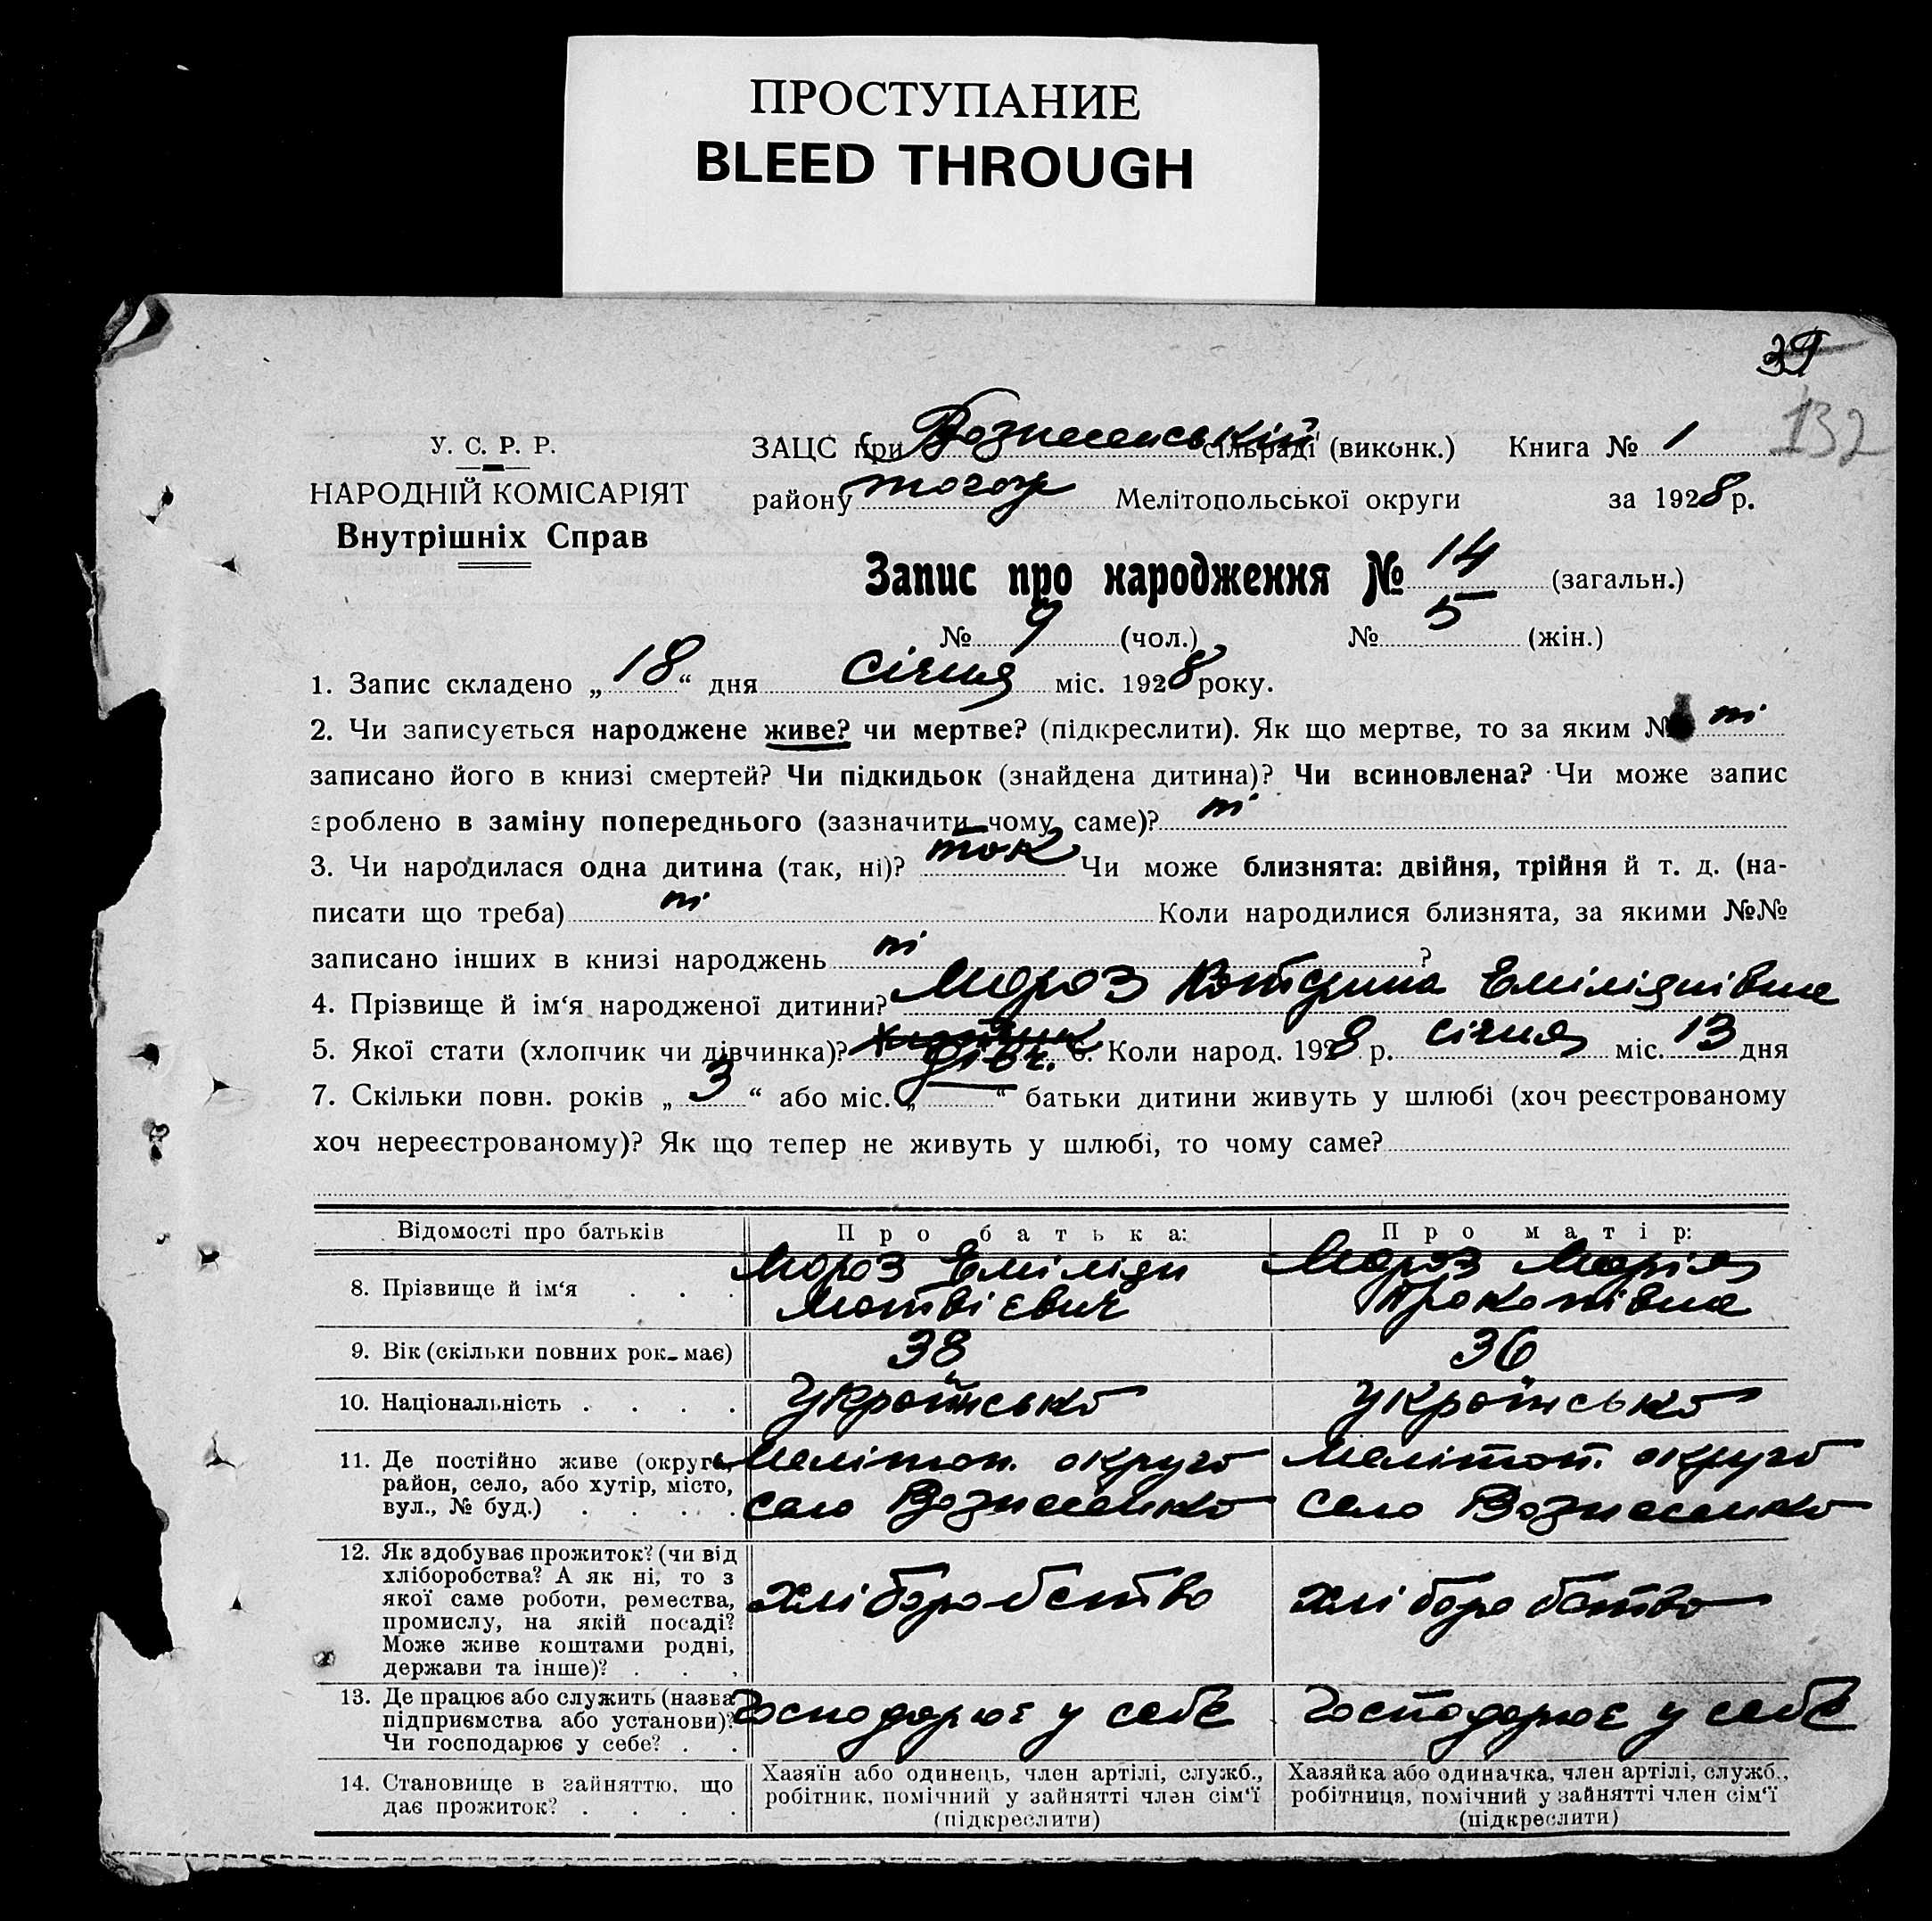 ПРОСТУПАНИЕ
BLEED THROUGH
39
132
У. С. Р. Р.
НАРОДНІЙ КОМІСАРІЯТ
Внутрішніх Справ
ЗАЦС при Вознесенській сільраді (виконк.) Книга № 1
району Мелітопольської округи за 1928 р.
Запис про народження № 14 (загальн.)
№ 9 (чол.) № 5 (жін.)
1. Запис складено „18“ дня січня міс. 1928 року.
2. Чи записується народжене живе? чи мертве? (підкреслити). Як що мертве, то за яким № ні
записано його в книзі смертей? Чи підкидьок (знайдена дитина)? Чи всиновлена? Чи може запис
зроблено в заміну попереднього (зазначити чому саме)? ні
3. Чи народилася одна дитина (так, ні)? так Чи може близнята: двійня, трійня й т. д. (на-
писати що треба) ні Коли народилися близнята, за якими №№
записано інших в книзі народжень ні ?
4. Прізвище й ім‘я народженої дитини? Мороз Катерина Еміліянівна
5. Якої стати (хлопчик чи дівчинка)? дівч. 6. Коли народ. 1928 р. січня міс. 13 дня
7. Скільки повн. років „3“ або міс. „—“ батьки дитини живуть у шлюбі (хоч реєстрованому
хоч нереєстрованому)? Як що тепер не живуть у шлюбі, то чому саме?
Відомості про батьків Про батька: Про матір:
8. Прізвище й ім‘я . . . Мороз Еміліян Матвієвич Мороз Марія Прокопівна
9. Вік (скільки повних рок. має) 38 36
10. Національність . . . . Українська українська
11. Де постійно живе (округа,
район, село, або хутір, місто,
вул., № буд.) . . . .
Мелітоп. округа
село Вознесенка
Мелітоп. округа
село Вознесенка
12. Як здобуває прожиток? (чи від
хліборобства? А як ні, то з
якої саме роботи, ремества,
промислу, на якій посаді?
Може живе коштами родні,
держави та інше)? . . .
хліборобство
хліборобство
13. Де працює або служить (назва
підприємства або установи)?
Чи господарює у себе? . .
Господарює у себе
Господарює у себе
14. Становище в зайняттю, що
дає прожиток? . . . .
Хазяїн або одинець, член артілі, служб.,
робітник, помічний у зайнятті член сім‘ї
(підкреслити)
Хазяйка або одиначка, член артілі, служб.,
робітниця, помічний у зайнятті член сім‘ї
(підкреслити)